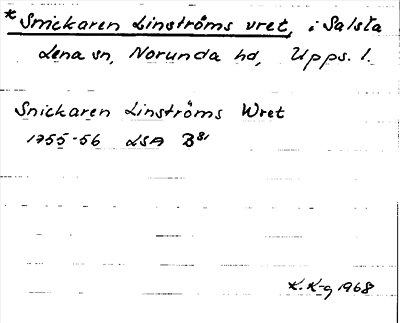 * Snickaren Linströms vret, i Salsta
Lena sn, Norunda hd, Upps. l.
Snickaren Linströms Wret
1755-56 LSA B⁸¹
K. K-g 1968